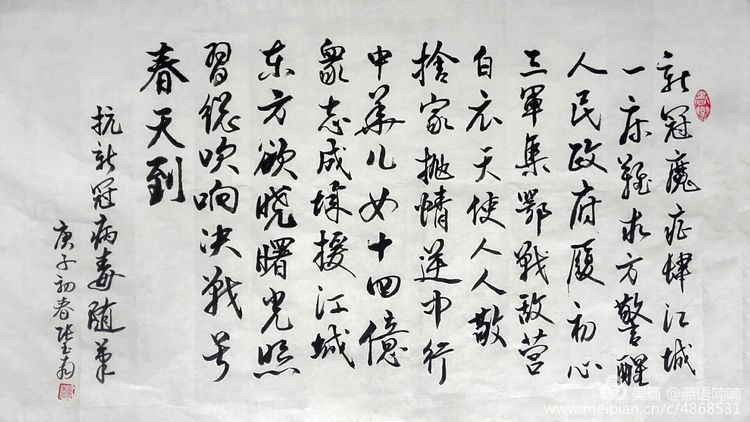 新冠魔症肆江城
一床難求方警醒
人民政府履初心
三軍集鄂戰敵营
白衣天使人人敬
捨家抛情逆行
中華儿女十四億
衆志成城援江城
东方欲晓曙光照
習総吹响决戰号
春天到
抗新冠病毒随筆
庚子初春
美篇 @燕语喃喃
www.meipian.cn/c/4868531